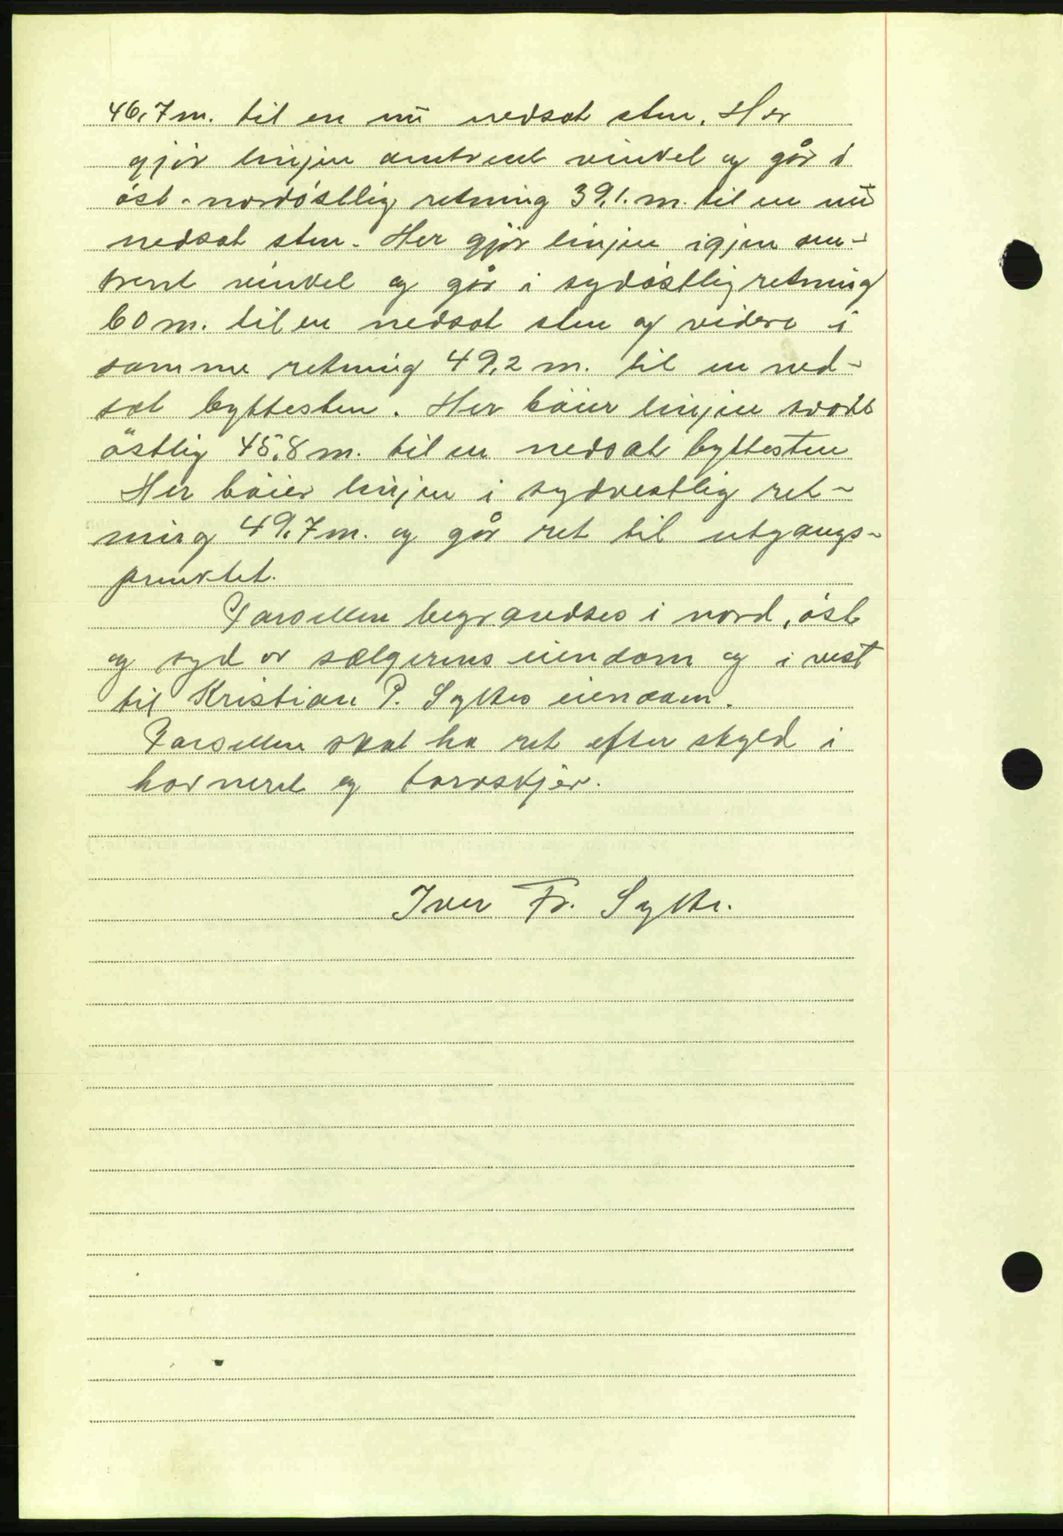 46,7 m. til en nu nedsat sten. Her
gjör linjen omtrent vinkel og går i
öst-nordöstlig retning 39,1. m. til en nu
nedsat sten. Her gjör linjen igjen om-
trent vinkel og går i sydöstlig retning
60 m. til en nedsat sten og videre i
samme retning 49,2 m. til en ned-
sat byttesten. Her böier linjen
östlig 45,8 m. til en nedsat byttesten
Her böier linjen i sydvestlig ret-
ning 49,7 m. og går ret til utgangs-
punktet.
Parsellen begrændses i nord, öst
og syd av sælgerens eiendom og i vest
til Kristian P. Syltes eiendom.
Parsellen skal ha ret efter skyld i
havneret og torvskjær.
Iver Fr. Sylte.